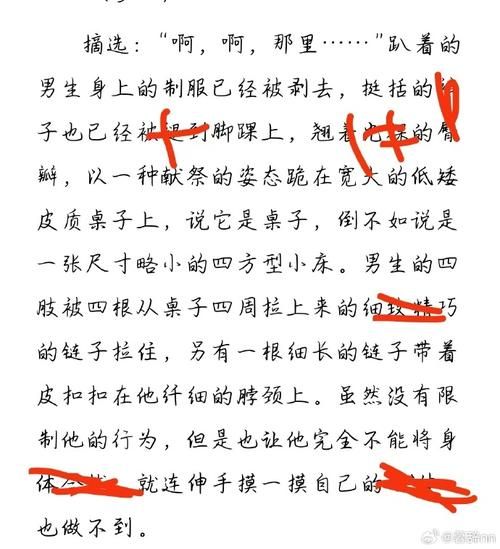 摘选：“啊，啊，那里……”趴着的
男生身上的制服已经被剥去，挺括的
子也已经被到脚踝上，翘着的臀
瓣，以一种献祭的姿态跪在宽大的低矮
皮质桌子上，说它是桌子，倒不如说是
一张尺寸略小的四方型小床。男生的四
肢被四根从桌子四周拉上来的细致精巧
的链子拉住，另有一根细长的链子带着
皮扣扣在他纤细的脖颈上。虽然没有限
制他的行为，但是也让他完全不能将身
体就连伸手摸一摸自己的
也做不到。